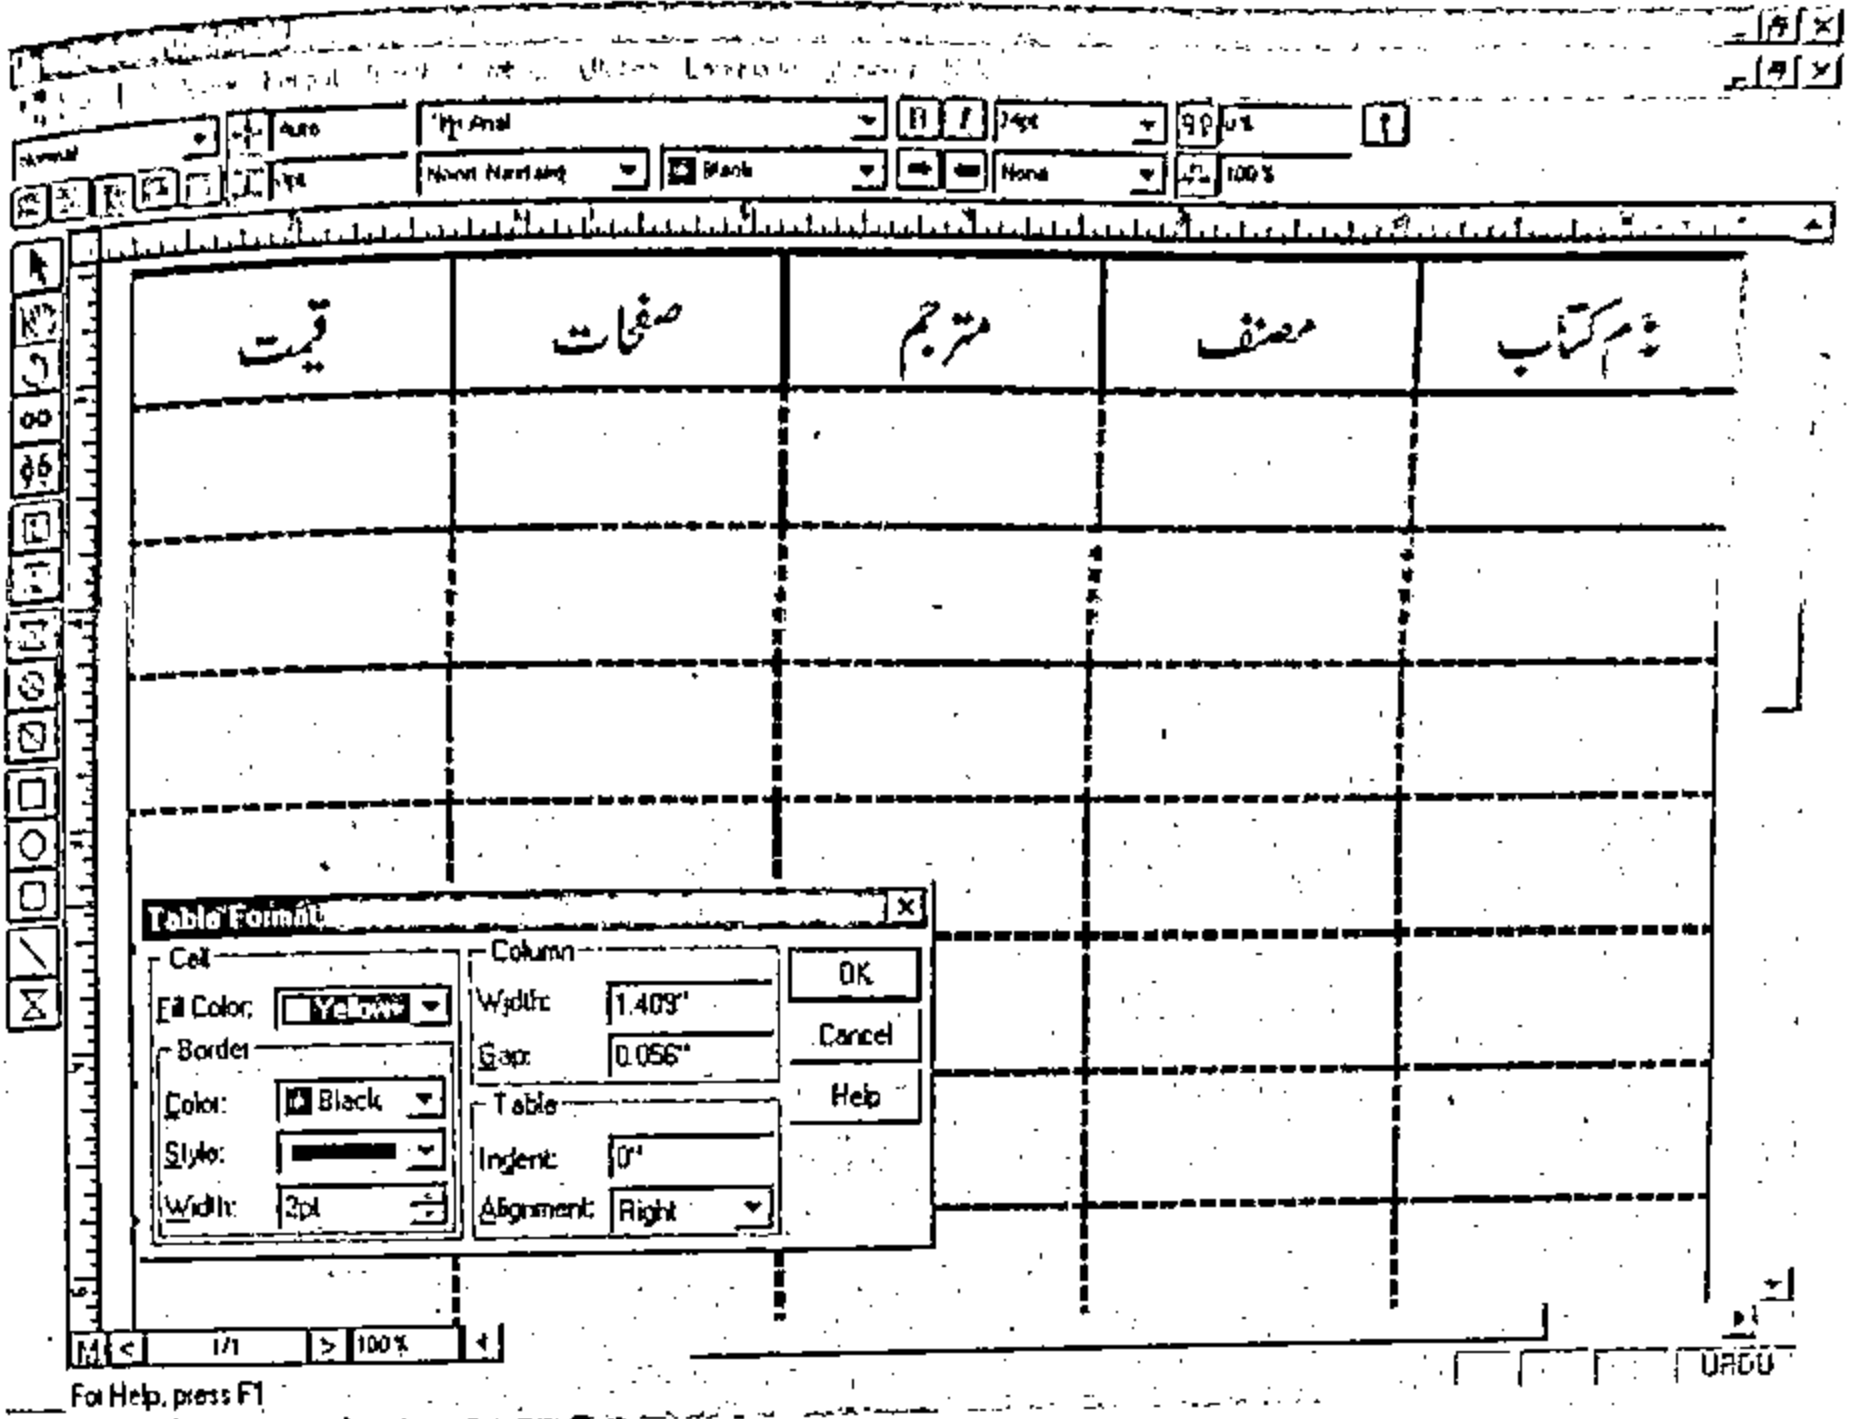 Normal Auto Arial B I 24pt 0%
0pt Noori Nastaliq Black None 100%
نام کتاب مصنف مترجم صفحات قیمت
Table Format
Cell
Fill Color: Yellow
Border
Color: Black
Style:
Width: 2pt
Column
Width: 1.409"
Gap: 0.056"
Table
Indent: 0"
Alignment: Right
OK
Cancel
Help
M < 1/1 > 100%
URDU
For Help, press F1